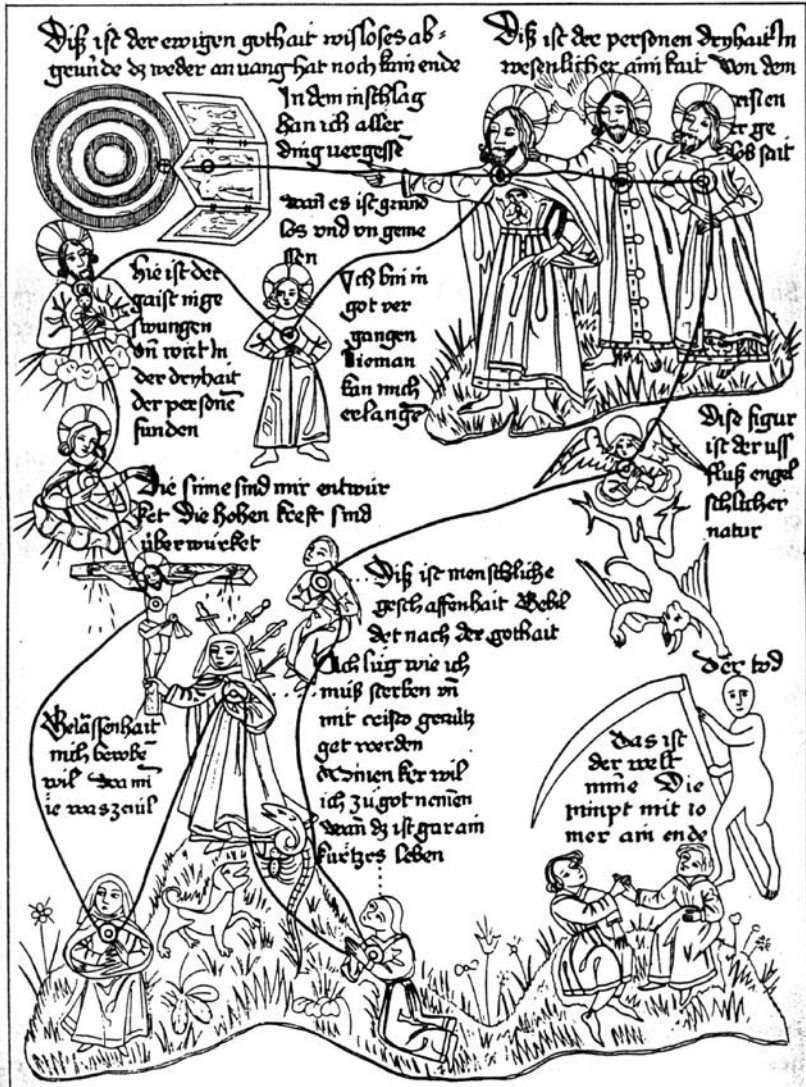 Diß ist der ewigen gothait wisloses ab=
grúnde dz weder an uang hat noch kain ende
Diß ist der personen dryhait In
wesenlicher ainikait Von dem
cristen
ge
lob sait
In dem inschlag
han ich aller
ding uergessē
wan es ist grund
los und un geme
ssen
hie ist der
gaist in ge
swungen
vn̄ wirt In
der dryhait
der personē
funden
Ich bin in
got ver
gangen
Nieman
kan mich
erlangē
Die sinne sind mir entwúr
ket Die hohen kreft sind
úberwúrket
Dise figur
ist der uss
fluß engel
schlicher
natur
Diß ist menschliche
geschaffenhait Gebil
det nach der gothait
Ich lúg wie ich
múß sterben vn̄
mit
get werden
minen ker wil
ich zú got nemen
wan̄ dz ist gar ain
kurtzes leben
Gelässenhait
mich berobē
wil wa mī
ie was ze uil
Der tod
das ist
der welt
mīne Die
nimpt mit io
mer ain ende